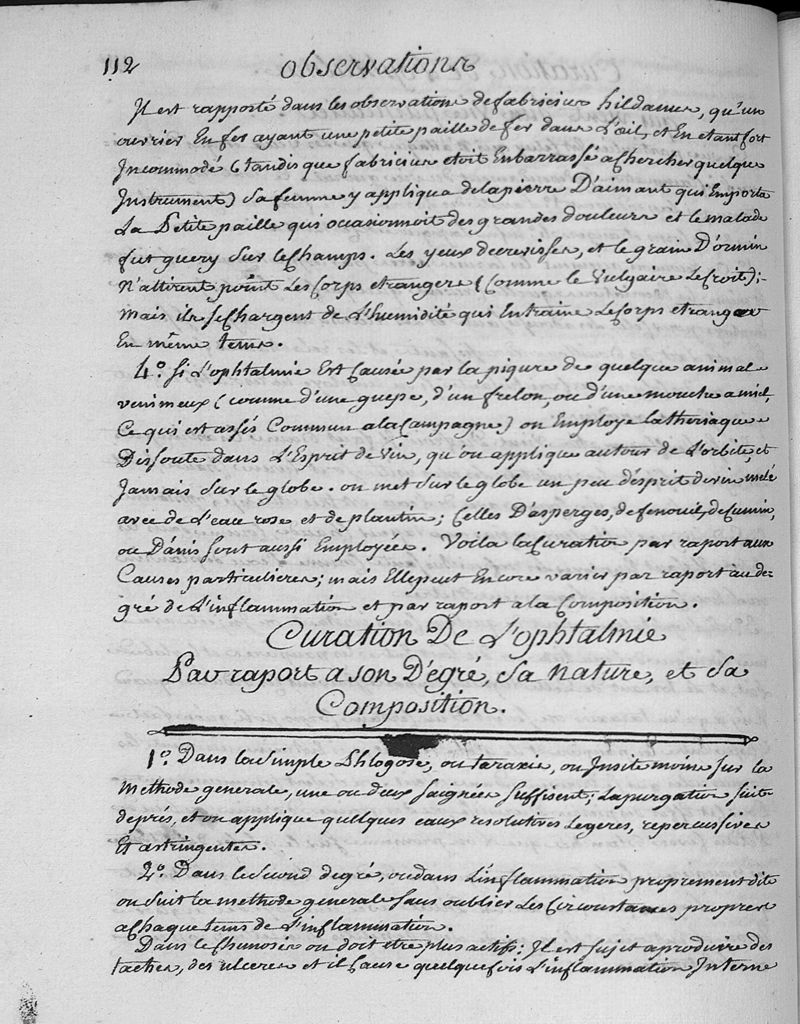 112 Observations
Il est rapporté dans les observations de fabricius hildanus, qu'un
ouvrier En fer ayant une petite paille de fer dans L'oeil, et En etant fort
Incommodé (tandis que fabricius etoit Embarrassé a chercher quelque
Instrument) sa femme y appliqua de la pierre D'aimant qui Emporta
La Petite paille qui occasionnoit des grandes douleurs et le malade
fut guery sur le champs. Les yeux decrevisses, et le grain D'ormin
N'attirent point Les Corps etrangers (Comme le Vulgaire Le Croit);
mais ils se Chargent de L'humidité qui Entraine Le Corps etranger
En même tems.
4.º si L'ophtalmie Est Causée par la piqure de quelque animal
venimeux (comme d'une guepe, d'un frelon, ou d'une mouche a miel,
Ce qui est assés Commun a la Campagne) on Employe la theriaque
Dissoute dans L'Esprit de vin, qu'on applique autour de L'orbite, et
Jamais sur le globe. on met sur le globe un peu d'esprit de vin mélé
avec de L'eau rose et de plantin; Celles D'asperges, de fenouil, de Cumin,
ou D'anis sont aussi Employées. Voila la Curation par raport aux
Causes particulieres; mais Elle peut Encore varier par raport au de-
gré de L'inflammation et par raport a la Composition.
Curation De L'ophtalmie
Par raport a son Dégré, sa nature, et sa
Composition.
1.º Dans la simple Phlogose, ou taraxie, on Insite moins sur la
Methode generale, une ou deux saignées suffisent; La purgation suit
de prés, et on applique quelques eaux resolutives Legeres, repercussives
Et astringentes.
2.º Dans le Second degré, ou dans L'inflammation proprement dite
on suit la methode generale sans oublier Les Circonstances propres
a Chaque tems de L'inflammation.
Dans le Chimosis on doit etre plus actifs: Il est sujet a produire des
taches, des ulceres et il Cause quelquefois L'inflammation Interne